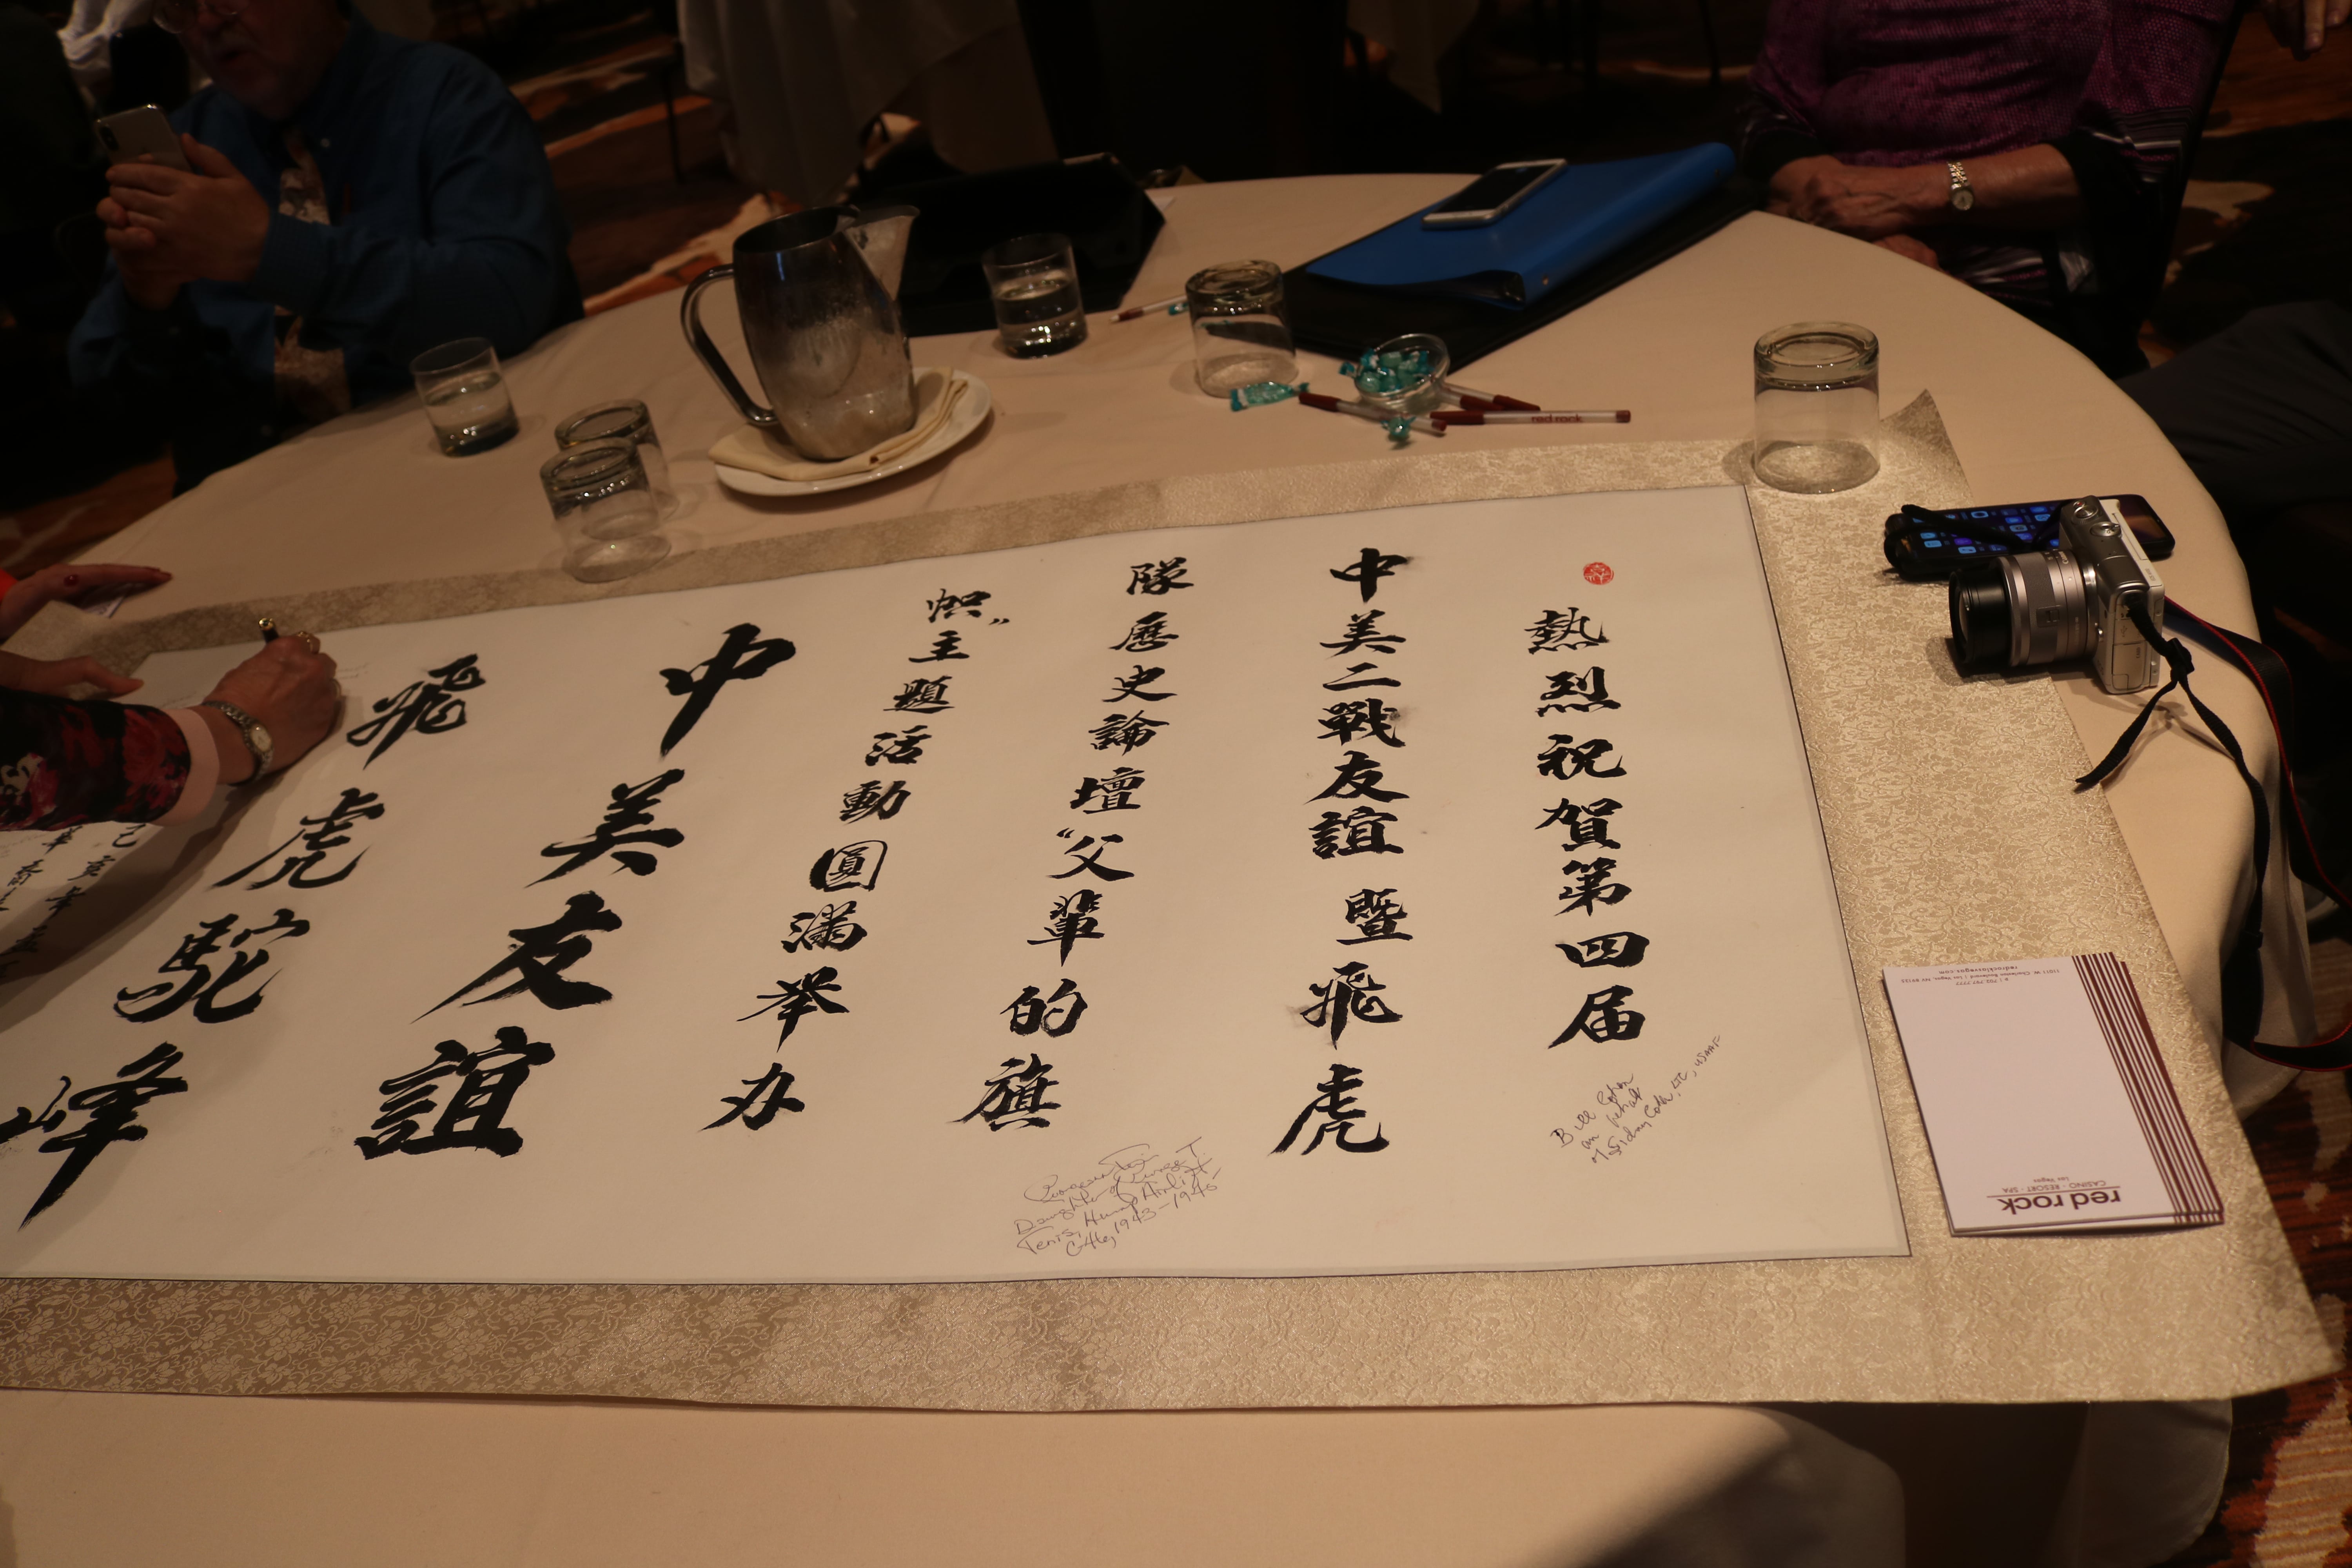 熱烈祝賀第四届
中美二戰友誼暨飛虎
隊歷史論壇"父輩的旗
幟"主題活動圓滿举办
中美友誼
飛虎駝峰
己亥年
Bill Cohn
on behalf
of Sidney Cohn, LTC, USAAF
Daughter of
1943-1945
red rock
red rock
CASINO · RESORT · SPA
Las Vegas
redrocklasvegas.com